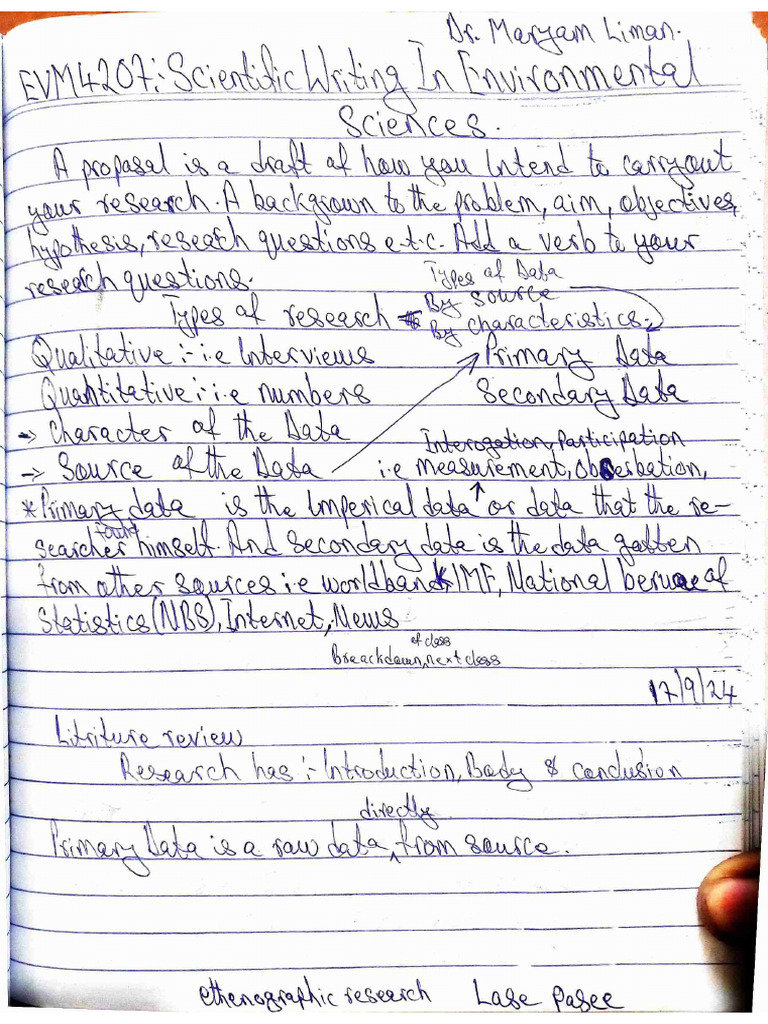 Dr. Maryam Liman.
EVM4207:- Scientific Writing In Environmental
Sciences.
A proposal is a draft of how you Intend to carryout
your research. A backgrown to the problem, aim, objectives,
hypothesis, research questions e.t.c. Add a verb to your
research questions.
Types of Data
By source
Types of research
By characteristics.
Qualitative :- i.e Interviews
Primary Data
Quantitative :- i.e numbers
Secondary Data
-> Character of the Data
Interogation, Participation
-> Source of the Data
i.e measurement, observation,
*Primary data is the Imperical data or data that the re-
found
searcher himself. And secondary data is the data gotten
from other sources i.e worldbank, IMF, National of
Statistics (NBS), Internet, News
of class
Breackdown, next class
17/9/24
Litriture review
Research has :- Introduction, Body & conclusion
directly
Primary Data is a raw data ^ from source.
ethenographic research